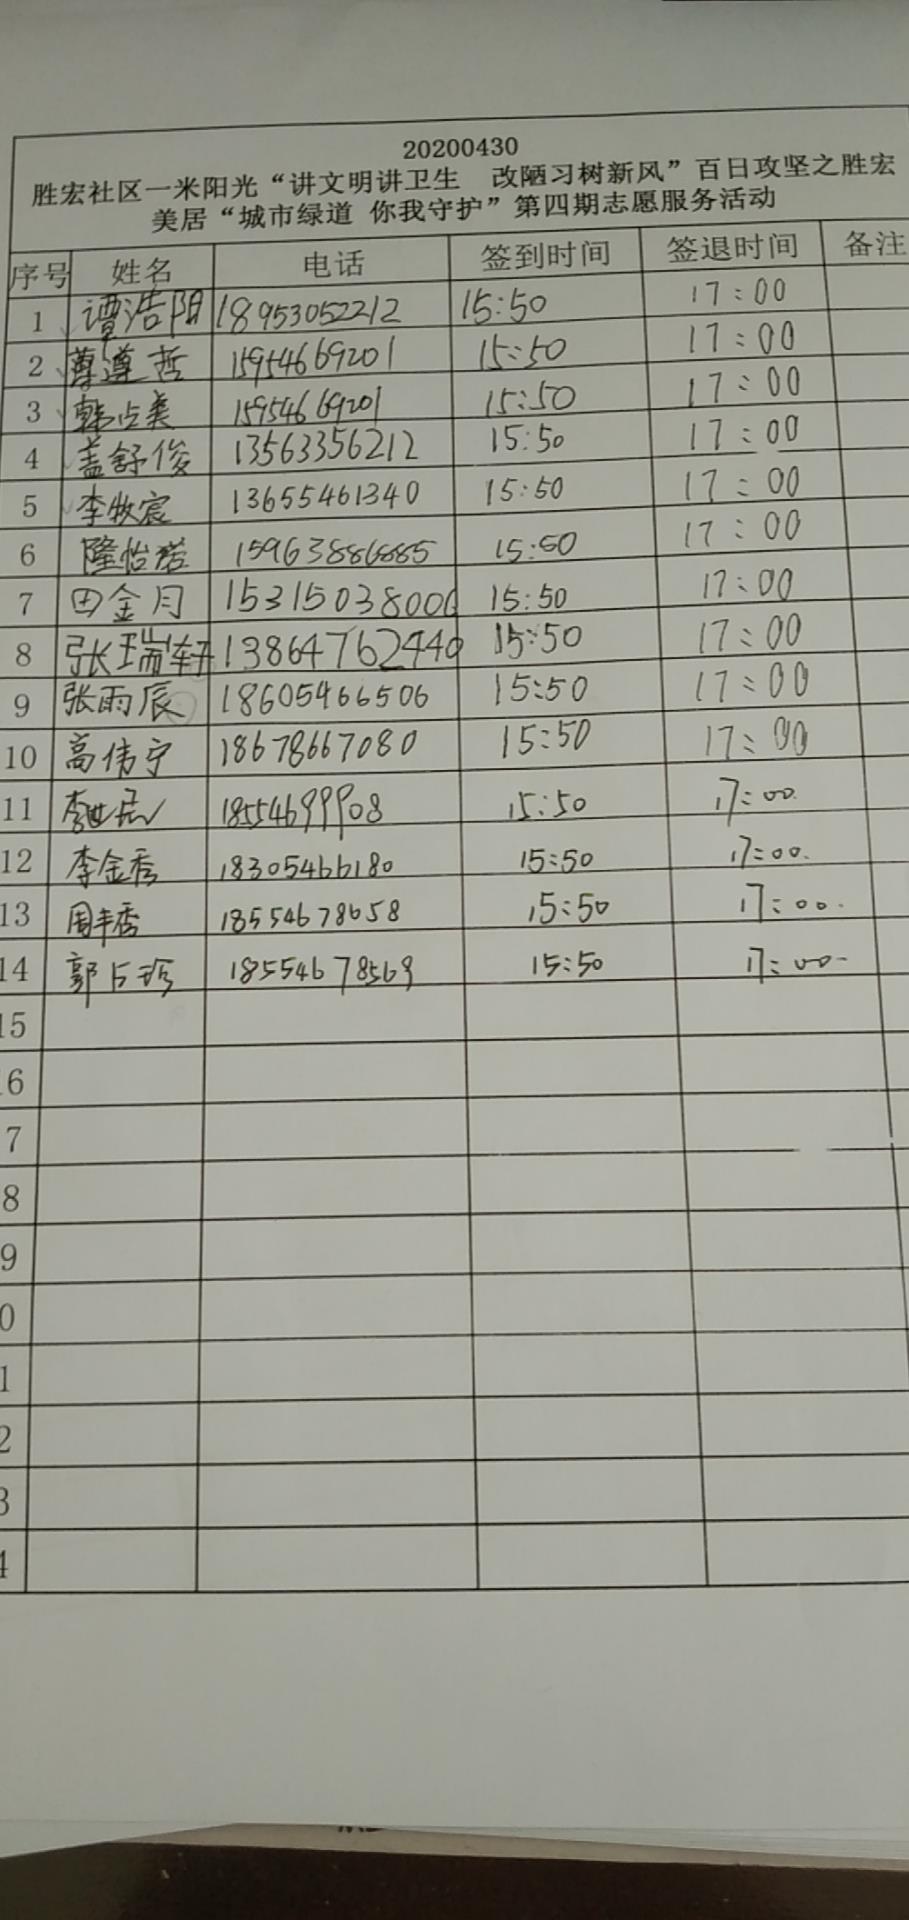 20200430
胜宏社区一米阳光“讲文明讲卫生 改陋习树新风”百日攻坚之胜宏
美居“城市绿道 你我守护”第四期志愿服务活动
序号 姓名 电话 签到时间 签退时间 备注
1 谭浩阳 18953052212 15:50 17:00
2 遵哲 15954669201 15:50 17:00
3 韩占美 15954669201 15:50 17:00
4 盖舒俊 13563356212 15:50 17:00
5 李牧宸 13655461340 15:50 17:00
6 隆怡诺 15963886885 15:50 17:00
7 田金月 15315038000 15:50 17:00
8 张瑞轩 13864762440 15:50 17:00
9 张雨辰 18605466506 15:50 17:00
10 高伟宁 18678667080 15:50 17:00
11 李世 18554699908 15:50 17:00
12 李金香 18305466180 15:50 17:00.
13 周丰香 18554678658 15:50 17:00.
14 郭占珍 18554678569 15:50 17:00
15
6
7
8
9
0
1
2
3
4